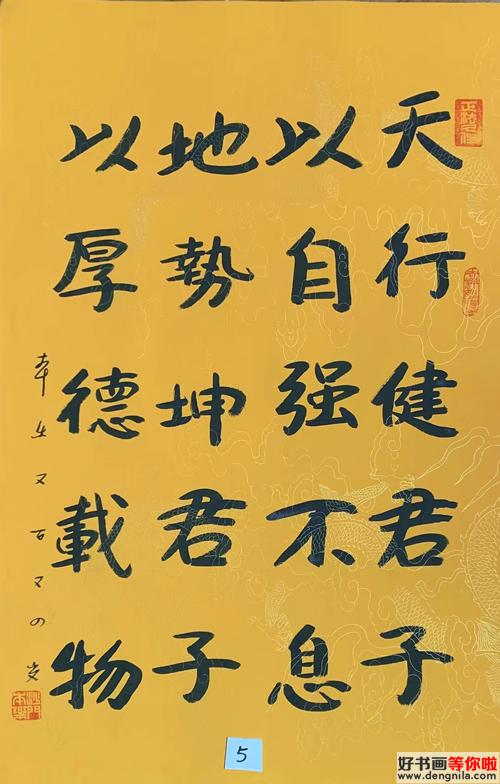 天行健君子
以自强不息
地勢坤君子
以厚德載物
本生又百又四岁
5
好书画等你啦
www.dengnila.com